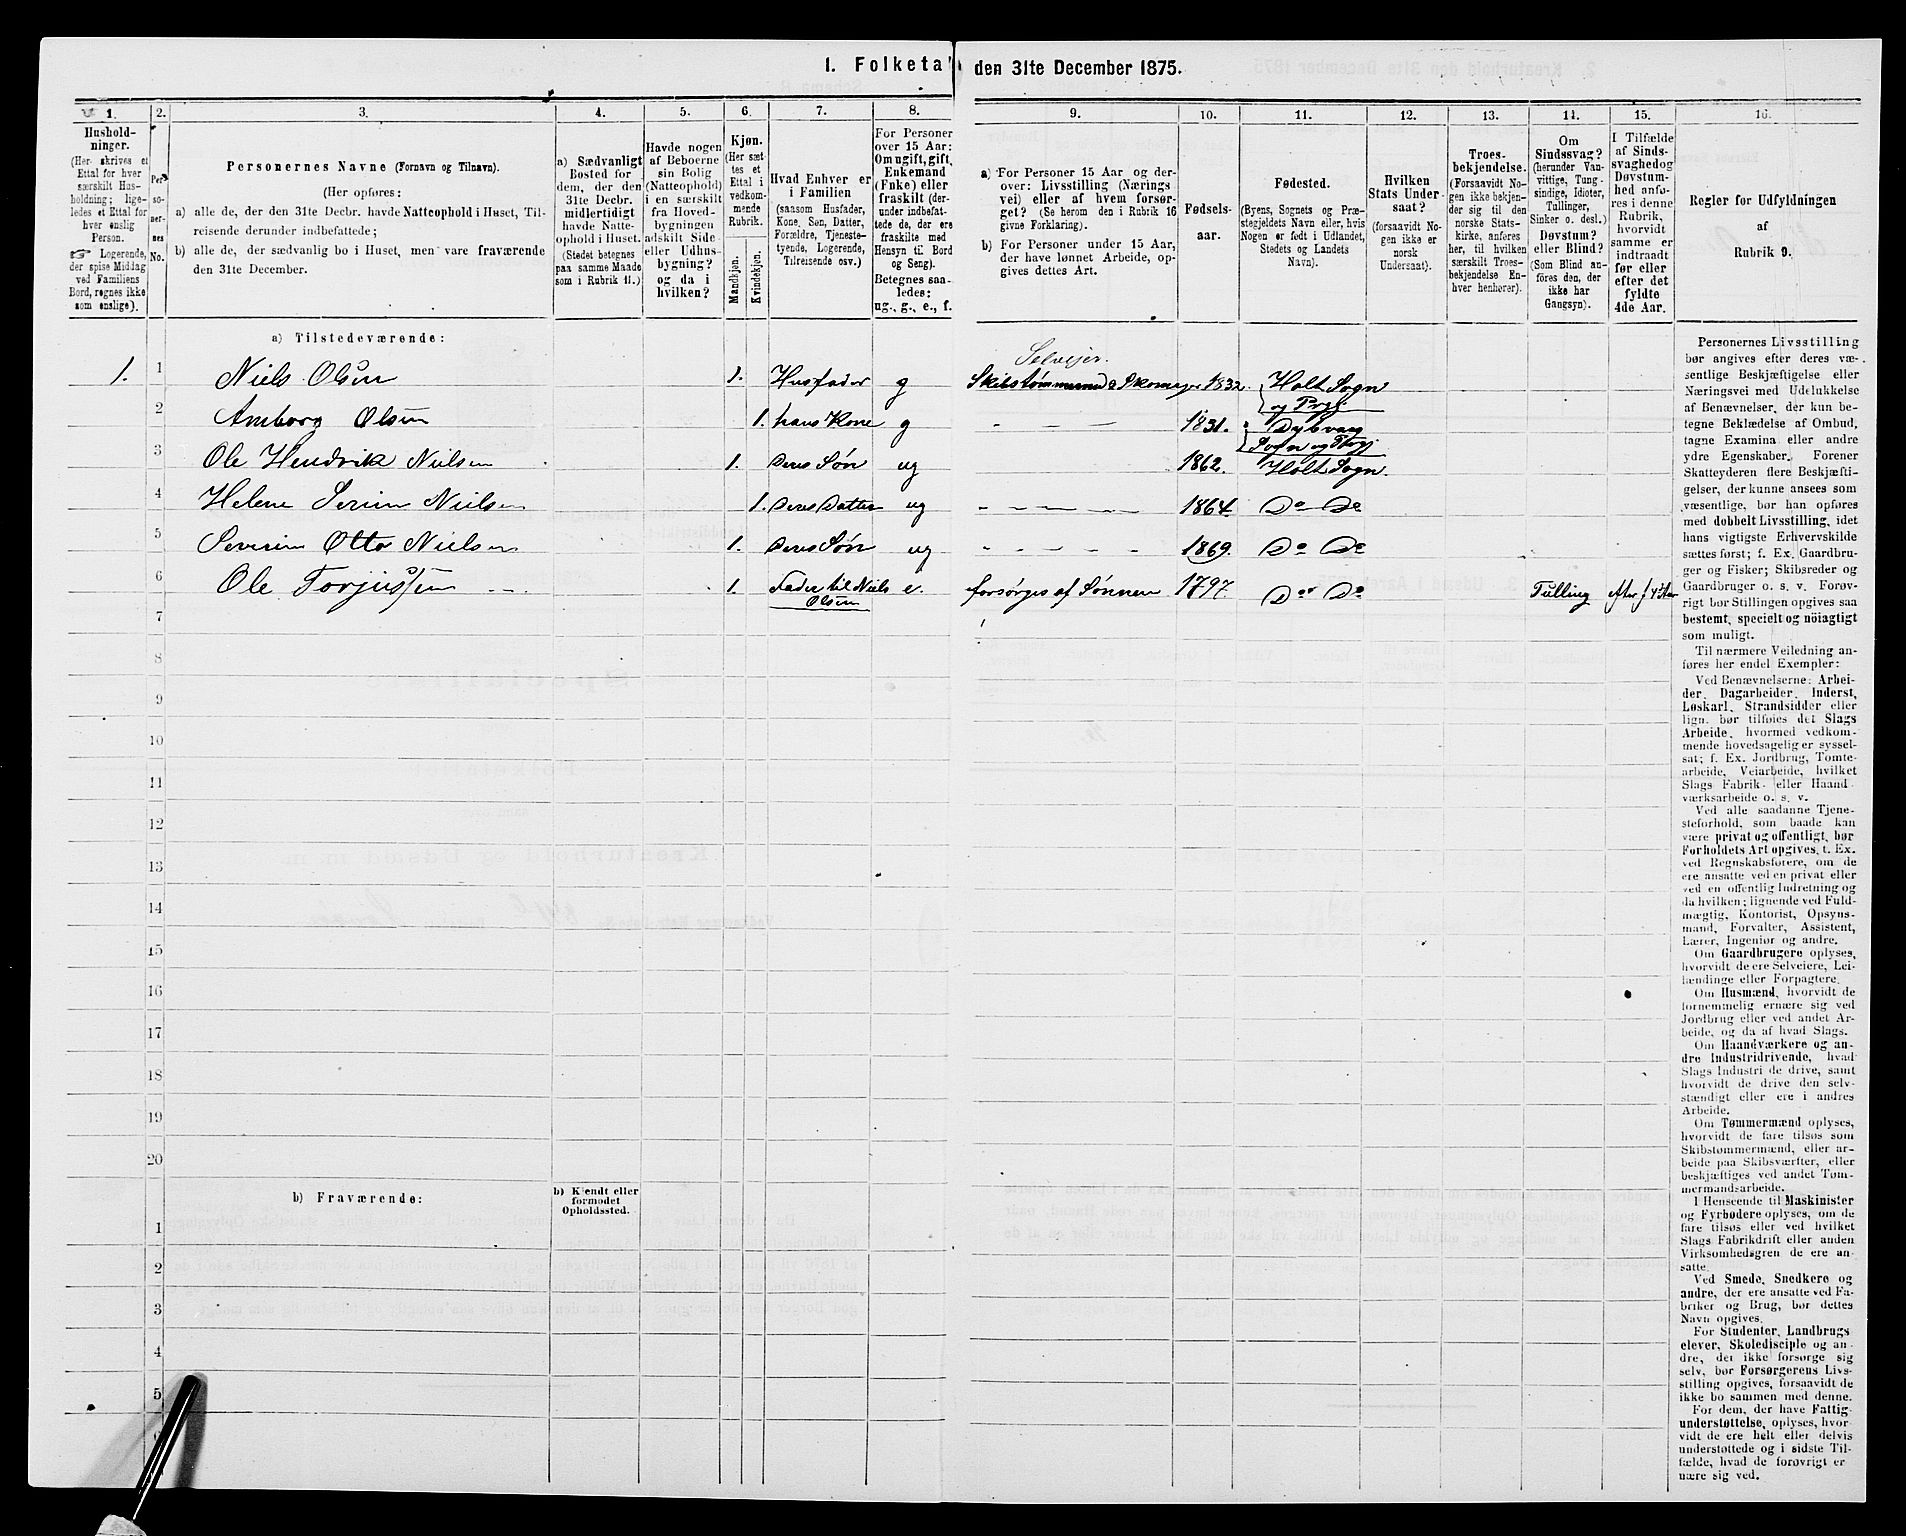 1. Folketal den 31te December 1875.
1. 2. 3. 4. 5. 6. 7. 8. 9. 10. 11. 12. 13. 14. 15. 16.
Hushold-
ninger.
(Her skrives et
Ettal for hver
særskilt Hus-
holdning; lige-
ledes et Ettal for
hver enslig
Person.
☞ Logerende,
der spise Middag
ved Familiens
Bord, regnes ikke
som enslige).
Per-
so-
ner-
nes
No.
Personernes Navne (Fornavn og Tilnavn).
(Her opføres:
a) alle de, der den 31te Decbr. havde Natteophold i Huset, Til-
reisende derunder indbefattede;
b) alle de, der sædvanlig bo i Huset, men vare fraværende
den 31te December.
a) Sædvanligt
Bosted for
dem, der den
31te Decbr.
midlertidigt
havde Natte-
ophold i Huset.
(Stedet betegnes
paa samme Maade
som i Rubrik 11.)
Havde nogen
af Beboerne
sin Bolig
(Natteophold)
i en særskilt
fra Hoved-
bygningen
adskilt Side-
eller Udhus-
bygning?
og da i
hvilken?
Kjøn.
(Her sæt-
tes et
Ettal i
vedkom-
mende
Rubrik.
Mandkjøn.
Kvindekjøn.
Hvad Enhver er
i Familien
(saasom Husfader,
Kone, Søn, Datter,
Forældre, Tjeneste-
tyende, Logerende,
Tilreisende osv.)
For Personer
over 15 Aar:
Om ugift, gift,
Enkemand
(Enke) eller
fraskilt (der-
under indbefat-
tede de, der ere
fraskilte med
Hensyn til Bord
og Seng).
Betegnes saa-
ledes:
ug., g., e., f.
a) For Personer 15 Aar og der-
over: Livsstilling (Nærings
vei) eller af hvem forsør-
get? (Se herom den i Rubrik 16
givne Forklaring).
b) For Personer under 15 Aar,
der have lønnet Arbeide, op-
gives dettes Art.
Fødsels-
aar.
Fødested.
(Byens, Sognets og Præ-
stegjeldets Navn eller, hvis
Nogen er født i Udlandet,
Stedets og Landets
Navn).
Hvilken
Stats Under-
saat?
(forsaavidt No-
gen ikke er
norsk
Undersaat).
Troes-
bekjendelse.
(Forsaavidt No-
gen ikke bekjen-
der sig til den
norske Stats-
kirke, anføres
her, til hvilken
særskilt Troes-
bekjendelse En-
hver henhører).
Om
Sindssvag?
(herunder Van-
vittige, Tung-
sindige, Idioter,
Tullinger,
Sinker o. desl.)
Døvstum?
eller Blind?
(Som Blind an-
føres den, der
ikke har
Gangsyn).
I Tilfælde
af Sinds-
svaghed og
Døvstum-
hed anfø-
res i denne
Rubrik,
hvorvidt
samme er
indtraadt
før eller
efter det
fyldte
4de Aar.
Regler for Udfyldningen
af
Rubrik 9.
a) Tilstedeværende:
Selvejer.
1. 1 Niels Olsen 1. Husfader g Skibstømmermd & Skomager 1832. Holt Sogn
og Prgj
2 Amborg Olsen 1. hans Kone g — — — 1831. Dybvaag
Sogn og Prgj
3 Ole Hendrik Nielsen 1. Deres Søn ug 1862. Holt Sogn.
4 Helene Serine Nielsen 1. Deres Datter ug — — — — 1864. Do Do
5 Severin Otto Nielsen 1. Deres Søn ug — — — — 1869. Do Do
6 Ole Torjussen 1. Fader til Niels e. forsørges af Sønnen 1797. Do Do Tulling efter f 4de Aar
Olsen
7
8
9
10
11
12
13
14
15
16
17
18
19
20
b) Fraværende:
b) Kjendt eller
formodet
Opholdssted.
1
2
3
4
5
6
Personernes Livsstilling
bør angives efter deres væ-
sentlige Beskjæftigelse eller
Næringsvei med Udelukkelse
af Benævnelser, der kun be-
tegne Beklædelse af Ombud,
tagne Examina eller andre
ydre Egenskaber. Forener
Skatteyderen flere Beskjæfti-
gelser, der kunne ansees som
væsentlige, bør han opføres
med dobbelt Livsstilling, idet
hans vigtigste Erhvervskilde
sættes først; f. Ex. Gaardbru-
ger og Fisker; Skibsreder og
Gaardbruger o. s. v. Forøv-
rigt bør Stillingen opgives saa
bestemt, specielt og nöiagtigt
som muligt.
Til nærmere Veiledning an-
føres her endel Exempler:
Ved Benævnelserne: Arbei-
der, Dagarbeider, Inderst,
Løskarl, Strandsidder eller
lign. bør tilføies det Slags
Arbeide, hvormed vedkom-
mende hovedsagelig er syssel-
sat; f. Ex. Jordbrug, Tomte-
arbeide, Veiarbeide, hvilket
Slags Fabrik- eller Haand-
værksarbeide o. s. v.
Ved alle saadanne Tjene-
steforhold, som baade kan
være privat og offentligt, bør
Forholdets Art opgives, t. Ex.
ved Regnskabsførere, om de
ere ansatte ved en privat eller
ved en offentlig Indretning og
da hvilken; lignende ved Fuld-
mægtig, Kontorist, Opsyns-
mand, Forvalter, Assistent,
Lærer, Ingeniør og andre.
Om Gaardbrugere oplyses,
hvorvidt de ere Selveiere, Lei-
lændinge eller Forpagtere.
Om Husmænd, hvorvidt de
fornemmelig ernære sig ved
Jordbrug eller ved andet Ar-
beide, og da af hvad Slags.
Om Haandværkere og an-
dre Industridrivende, hvad
Slags Industri de drive, samt
hvorvidt de drive den selv-
stændigt eller ere i andres
Arbeide.
Om Tømmermænd oplyses,
hvorvidt de fare tilsøs som
Skibstømmermænd, eller ar-
beide paa Skibsværfter, eller
beskjæftiges ved andet Tøm-
mermandsarbeide.
I Henseende til Maskinister
og Fyrbødere oplyses, om de
fare tilsøs eller ved hvilket
Slags Fabrikdrift eller anden
Virksomhedsgren de ere an-
satte.
Ved Smede, Snedkere og
andre, der ere ansatte ved Fa-
briker og Brug, bør dettes
Navn opgives.
For Studenter, Landbrugs
elever, Skoledisciple og an-
dre, der ikke forsørge sig
selv, bør Forsørgerens Livs-
stilling opgives, forsaavidt de
ikke bo sammen med denne.
For dem, der have Fattig-
understøttelse, oplyses, hvor-
vidt de ere helt eller delvis
understøttede og i sidste Til-
fælde, hvad de forøvrigt er
nære sig ved.